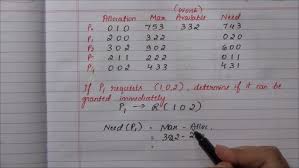 (Work)
Allocation Max Available Need
P0 010 753 332 743
P1 200 322 020
P2 302 902 600
P3 211 011
P4 002 433 431
If P1 requests (1,0,2), determine if it can be
granted immediately
P1 → R(1 0 2)
Need (P1) = Max - Alloc
= 322 - 2
: